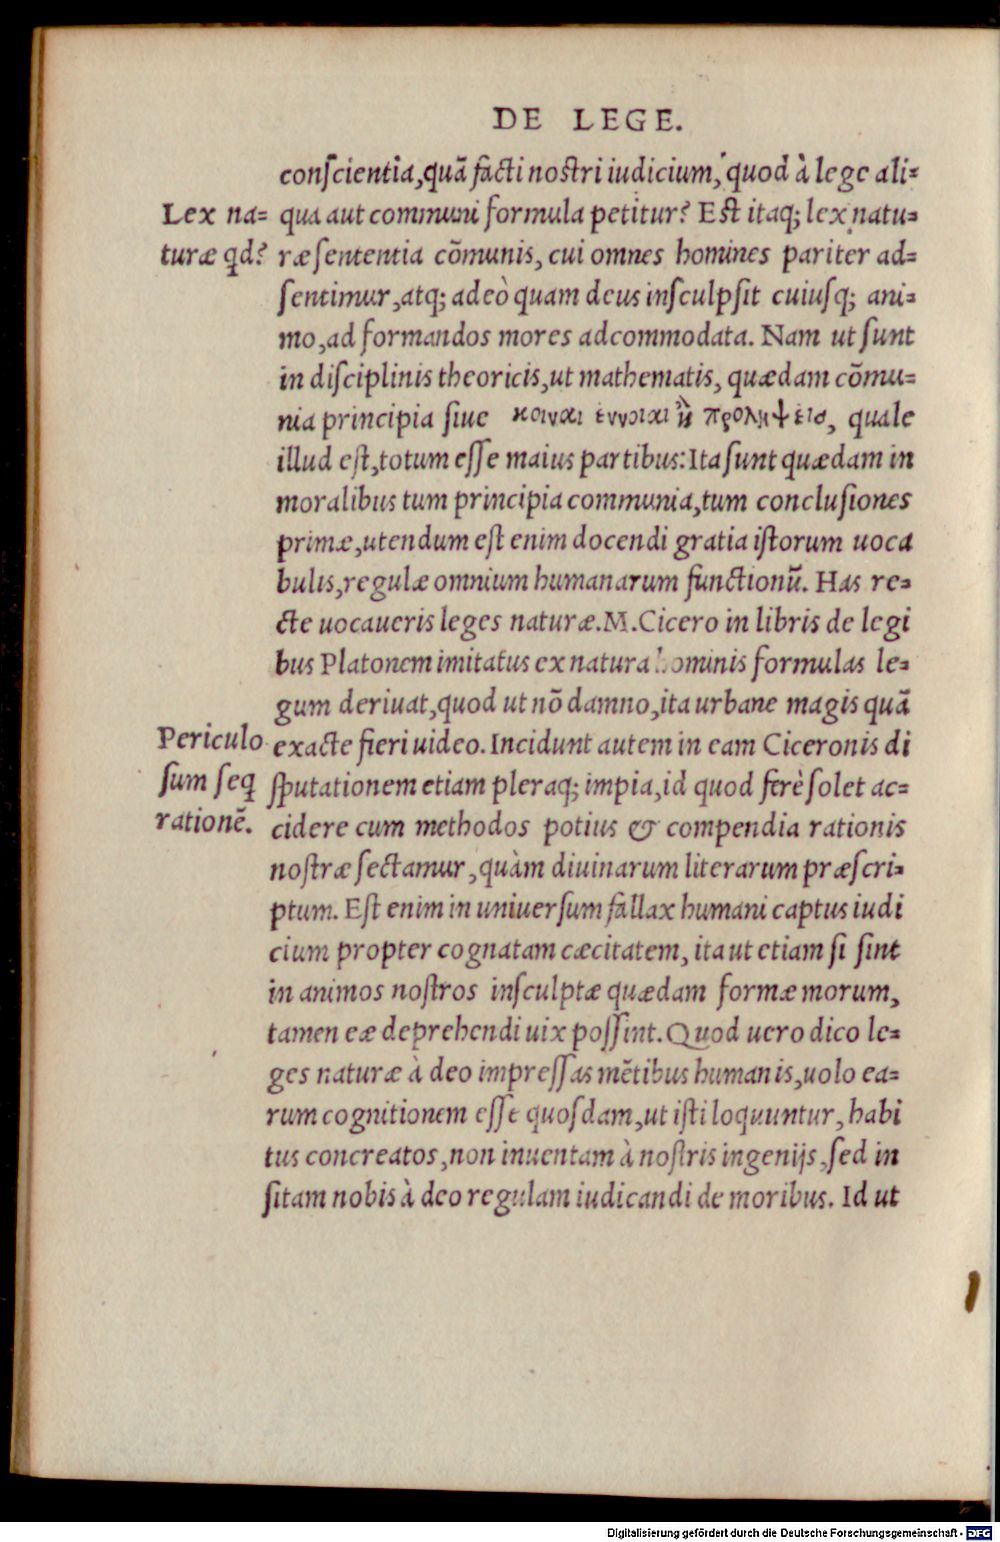 DE LEGE.
conſcientia,quā facti nostri iudicium, quod à lege ali⸗
qua aut communi formula petitur? Est itaq; lex natu⸗
ræ ſententia cōmunis, cui omnes homines pariter ad⸗
ſentimur,atq; adeò quam deus inſculpſit cuiuſq; ani⸗
mo,ad formandos mores adcommodata. Nam ut ſunt
in diſciplinis theoricis,ut mathematis, quædam cōmu⸗
nia principia ſiue κοιναι εννοιαι ἢ προληψεις, quale
illud est,totum eſſe maius partibus: Ita ſunt quædam in
moralibus tum principia communia,tum concluſiones
primæ,utendum est enim docendi gratia iſtorum uoca
bulis,regulæ omnium humanarum functionū. Has re⸗
cte uocaueris leges naturæ.M.Cicero in libris de legi
bus Platonem imitatus ex natura hominis formulas le⸗
gum deriuat,quod ut nō damno,ita urbane magis quā
exacte fieri uideo. Incidunt autem in eam Ciceronis di
ſputationem etiam pleraq; impia,id quod ferè ſolet ac⸗
cidere cum methodos potius & compendia rationis
noſtræ ſectamur,quàm diuinarum literarum præſcri⸗
ptum. Est enim in uniuerſum fallax humani captus iudi
cium propter cognatam cæcitatem, ita ut etiam ſi ſint
in animos noſtros inſculptæ quædam formæ morum,
tamen eæ deprehendi uix poſſint. Quod uero dico le⸗
ges naturæ à deo impreſſas mētibus humanis,uolo ea⸗
rum cognitionem eſſe quoſdam,ut iſti loquuntur, habi
tus concreatos,non inuentam à noſtris ingenijs,ſed in
ſitam nobis à deo regulam iudicandi de moribus. Id ut
Lex na⸗
turæ qd?
Periculo
ſum ſeq
rationē.
Digitalisierung gefördert durch die Deutsche Forschungsgemeinschaft - DFG